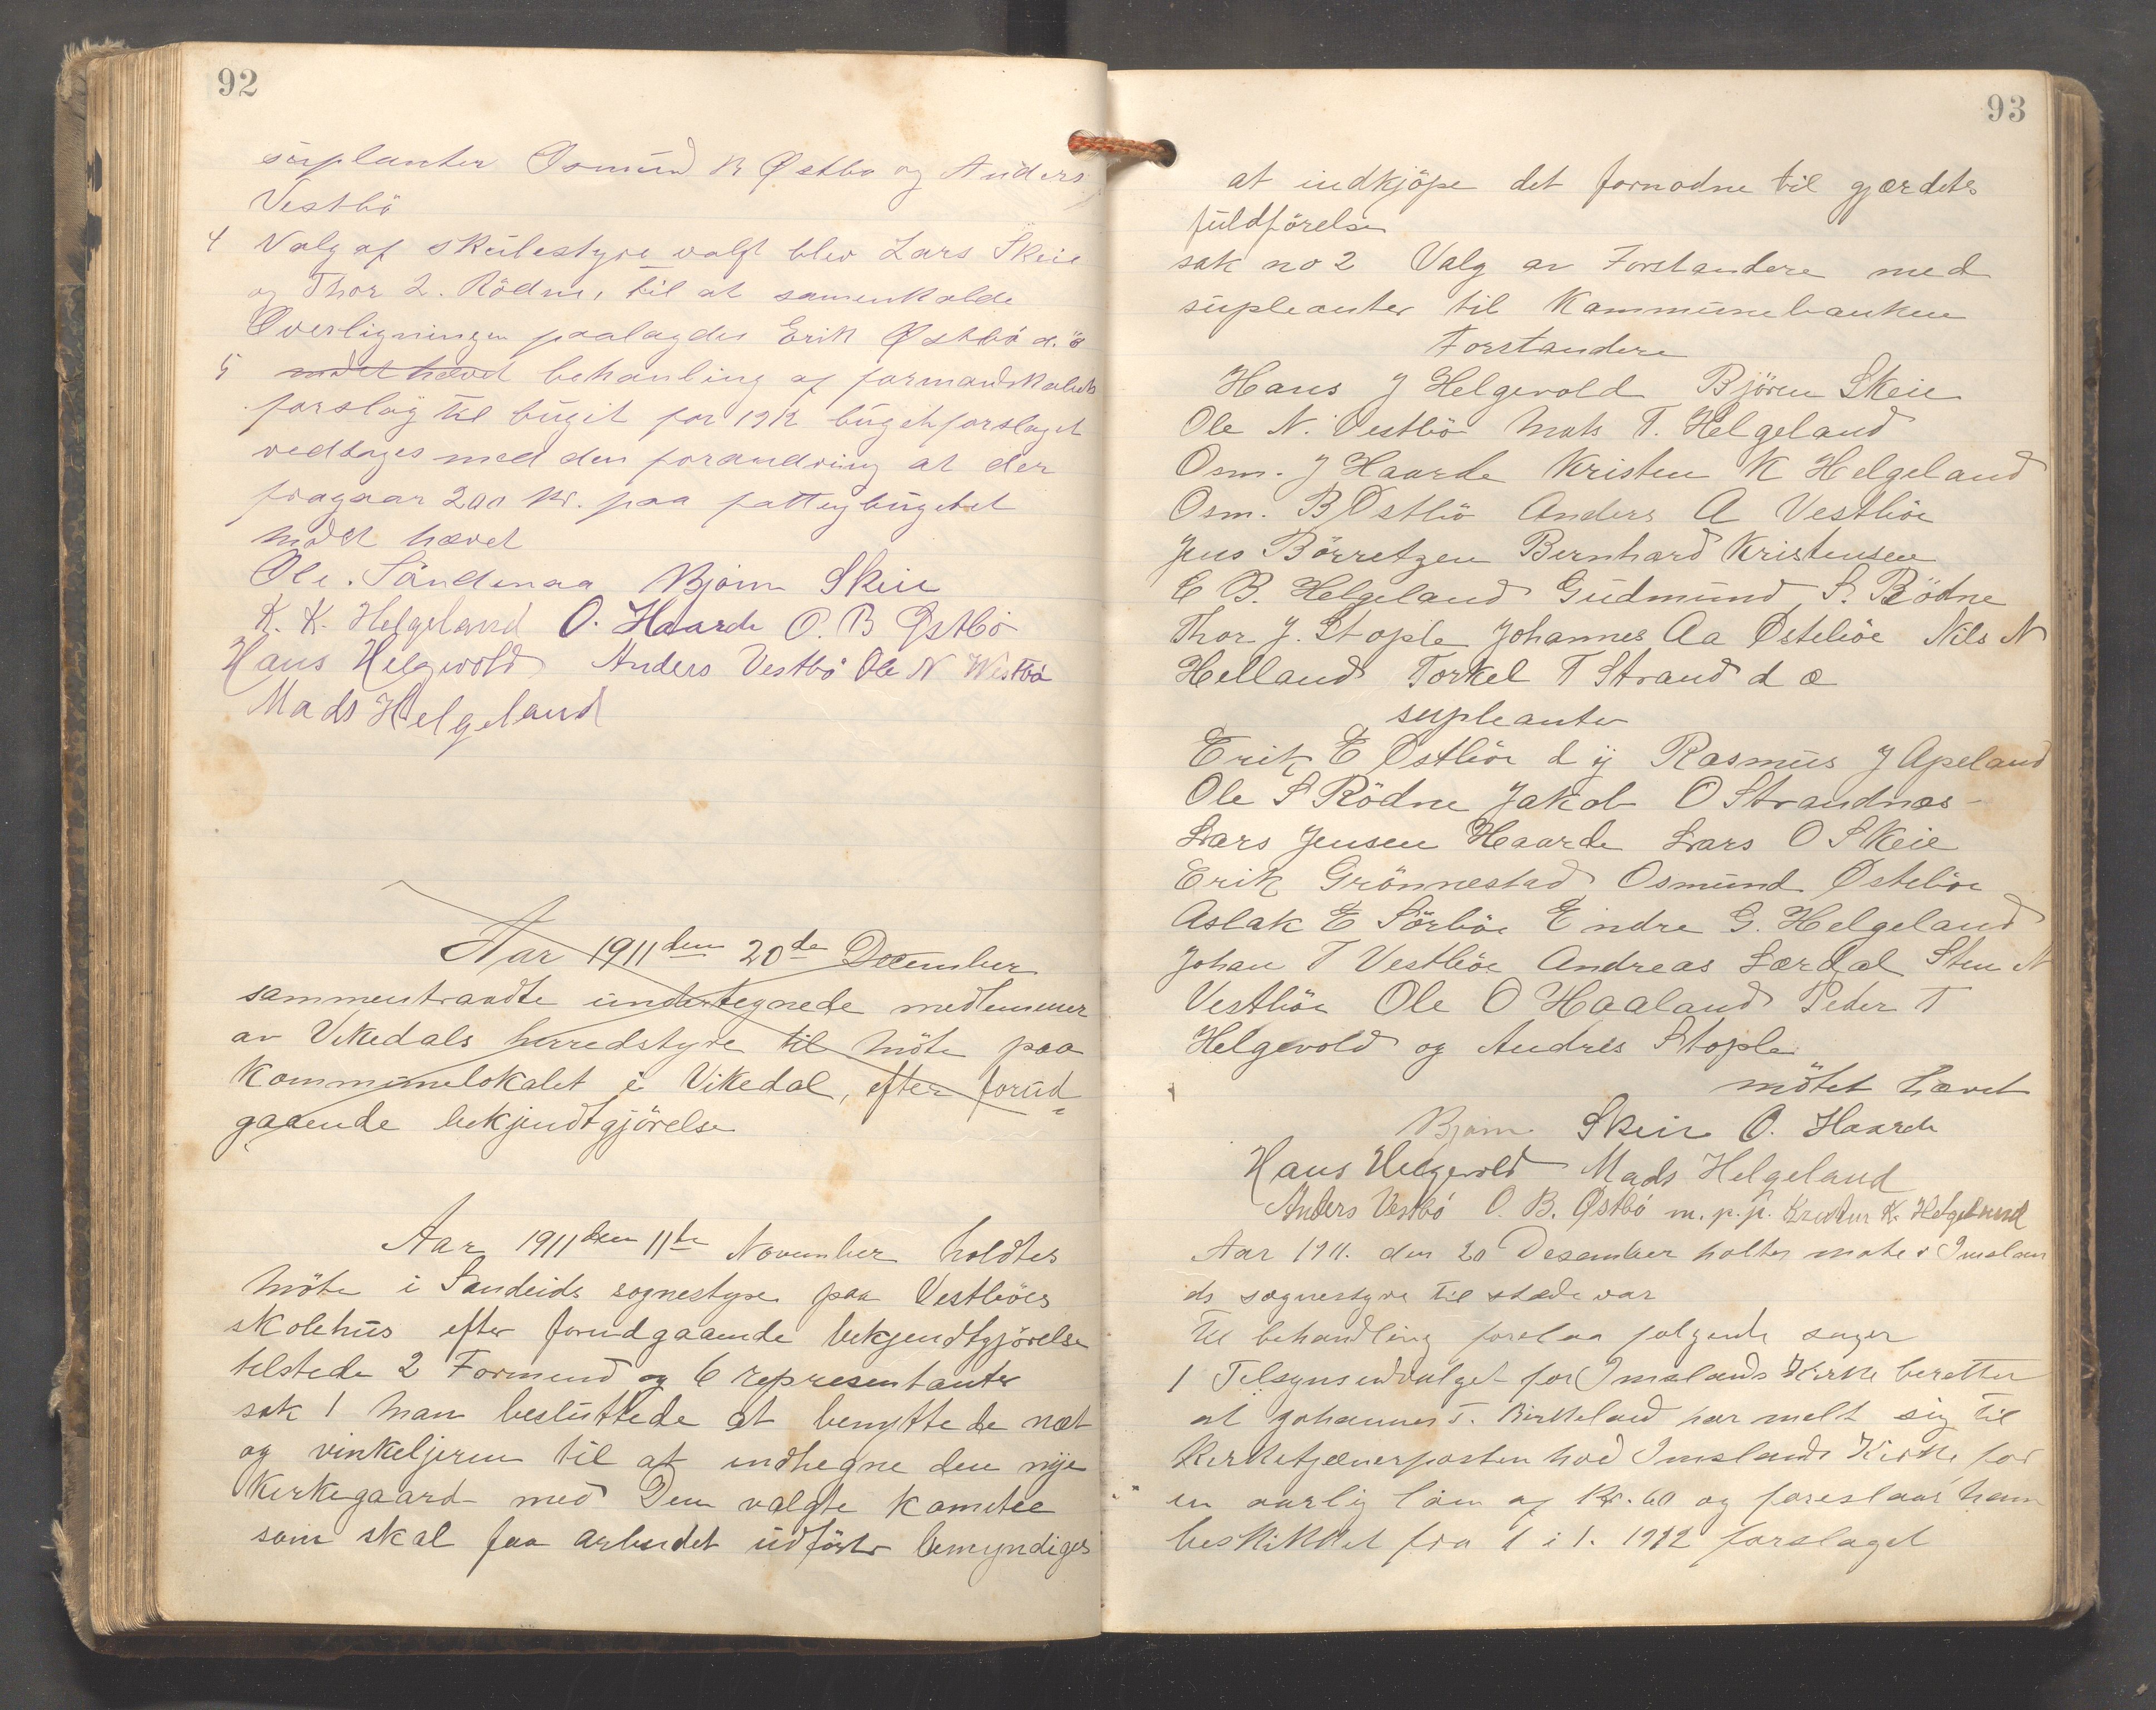 92
suplanter Osmund B Østbø og Anders
Vestbö
4 Valg af skulestyre valgt blev Lars Skeie
og Thor L. Rödne, til at samenkalde
Overligningen paalagdes Erik Østbö d.æ
5 mödet hævet behanling af formandskabets
forslag til büget for 1912 bügetforslaget
vedtages med den forandring at der
fragaar 200 kr. paa fattigbügetet
mödet hævet
Ole. Sandenaa Bjørn Skeie
K. K. Helgeland O. Haarde O. B Østbö
Hans Helgevold Anders Vestbö Ole N Westbö
Mads Helgeland
Aar 1911 den 20de December
sammentraadte undertegnede medlemmer
av Vikedals herredstyre til Möte paa
Kommunelokalet i Vikedal, efter forud-
gaaende bekjendtgjörelse
Aar 1911 den 11te November holdtes
Möte i Sandeids sognestyre paa Vestböes
skolehus efter forudgaaende bekjendtgjörelse
tilstede 2 Formend og 6 representanter
sak 1 Man besluttede at benytte de næt
og vinkeljern til at indhegne den nye
Kirkegaard med Den valgte Komitee
som skal faa arbeidet udfört bemyndiges
93
at indkjöpe det fornodne til gjærdets
fuldförelse
sak no 2 Valg av Forstandere med
supleanter til Kommunebanken
Forstandere
Hans J Helgevold Björn Skeie
Ole N. Vestbö Mats T. Helgeland
Osm. J Haarde Kristen K Helgeland
Osm. B Östbö Anders A Vestböe
Jens Börretzen Bernhard Kristensen
E B. Helgeland Gudmund S. Rödne
Thor J. Stople Johannes Aa Östeböe Nils N
Helland Torkel T Strand d æ
supleanter
Erik E Östböe d y Rasmus J Apeland
Ole S Rödne Jakob O Strandnæs
Lars Jensen Haarde Lars O Skeie
Erik Grönnestad Osmund Östeböe
Aslak E Sörböe Endre G. Helgeland
Johan T Vestböe Andreas Lærdal Sten N
Vestböe Ole O Haaland Peder T
Helgevold og Andres Stople
mötet hævet
Bjørn Skeie O. Haarde
Hans Helgevold Mads Helgeland
Anders Vestbö O. B. Østbö m. p. p. Kristen K. Helgeland
Aar 1911. den 20 Desember holtes møte i Imslan
ds sognestyre til stæde var
Til behandling forelaa følgende sager
1 Tilsynsudvalget for Imslands Kirke beretter
at Johannes T. Birkeland har melt sig til
Kirketjænerposten hod Imslands Kirke for
en aarlig løn af Kr. 60 og foreslaar ham
beskikket fra 1 i 1. 1912 forslaget